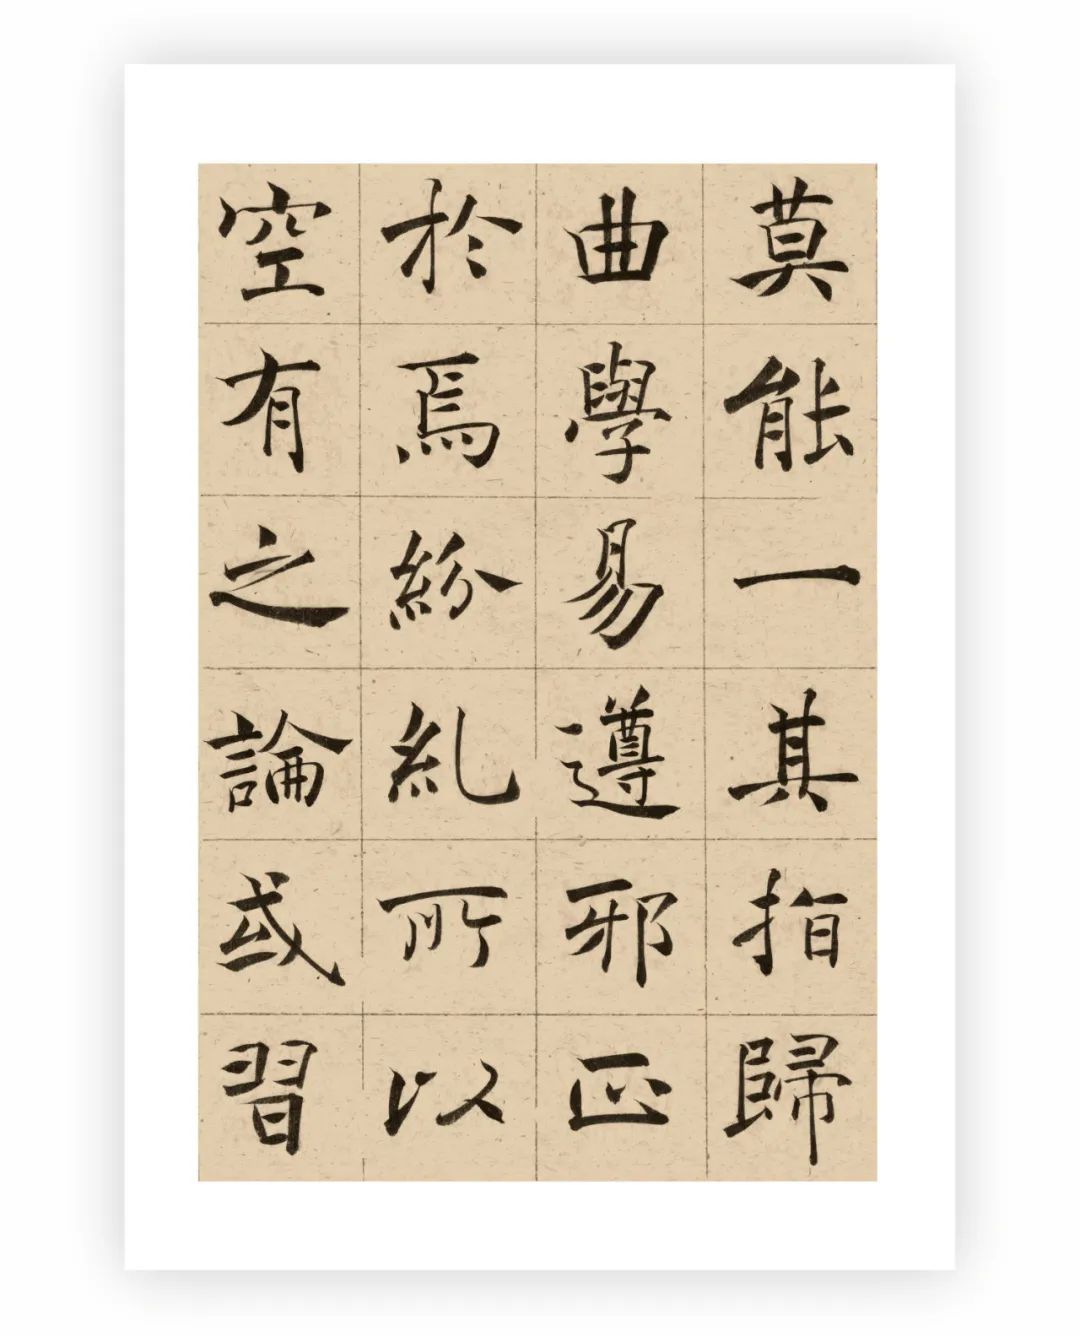 莫能一其指歸
曲學易遵邪正
於焉紛糺所以
空有之論或習